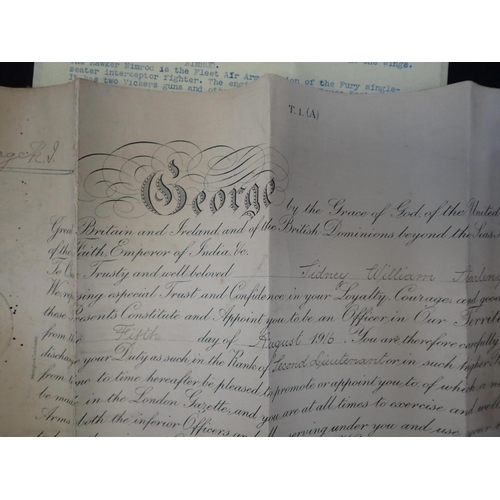 Hawker Nimrod is the Fleet Air Arm version of the Fury single-
seater interceptor fighter. The
It has two Vickers guns and
T. 1. (A)
George by the Grace of God, of the United
Great Britain and Ireland, and of the British Dominions beyond the Seas,
of the Faith, Emperor of India, &c.
To Our Trusty and well beloved Sidney William
We reposing especial Trust and Confidence in your Loyalty, Courage, and good
these Presents Constitute and Appoint you to be an Officer in Our
from the Fifth day of August 1916. You are therefore carefully
discharge your Duty as such, in the Rank of Second Lieutenant or in such higher
from time to time hereafter be pleased to promote or appoint you to, of which a
be made in the London Gazette, and you are at all times to exercise and well
Arms, both the inferior Officers and serving under you and use your